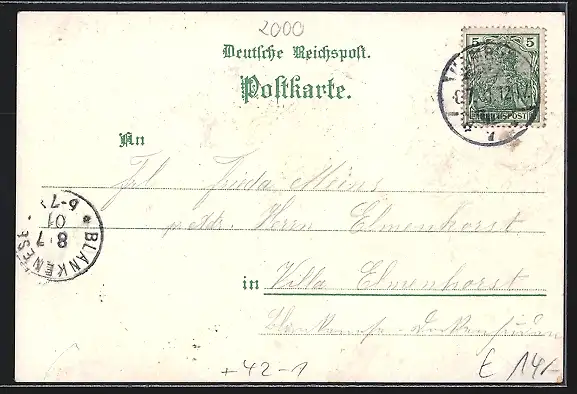 2000
Deutsche Reichspost.
Postkarte.
5 5
REICHSPOST
An
Frl. Frieda Meins
p. Adr. Herrn Elmenhorst
in Villa Elmenhorst
Blankenese-Dockenhuden
BLANKENESE
8 7
01
6-7
+42-1
E 14/-